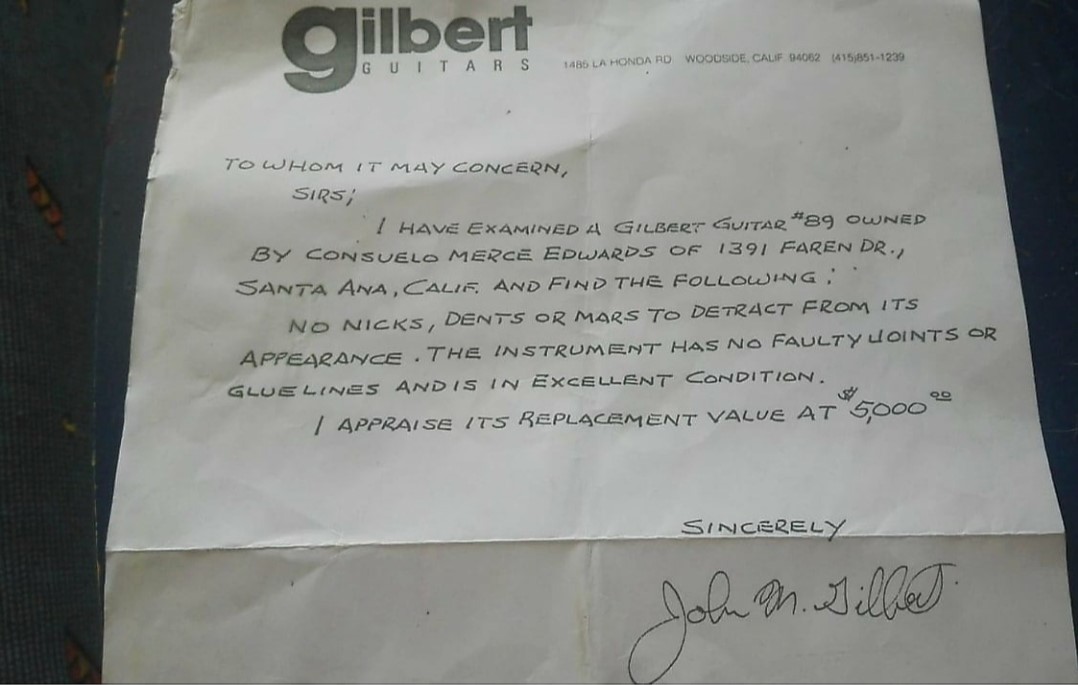 gilbert
GUITARS
1485 LA HONDA RD WOODSIDE, CALIF 94062 (415)851-1239
TO WHOM IT MAY CONCERN,
SIRS;
I HAVE EXAMINED A GILBERT GUITAR #89 OWNED
BY CONSUELO MERCE EDWARDS OF 1391 FAREN DR.,
SANTA ANA, CALIF. AND FIND THE FOLLOWING:
NO NICKS, DENTS OR MARS TO DETRACT FROM ITS
APPEARANCE. THE INSTRUMENT HAS NO FAULTY JOINTS OR
GLUE LINES AND IS IN EXCELLENT CONDITION.
I APPRAISE ITS REPLACEMENT VALUE AT $5,000 00
SINCERELY
John M. Gilbert